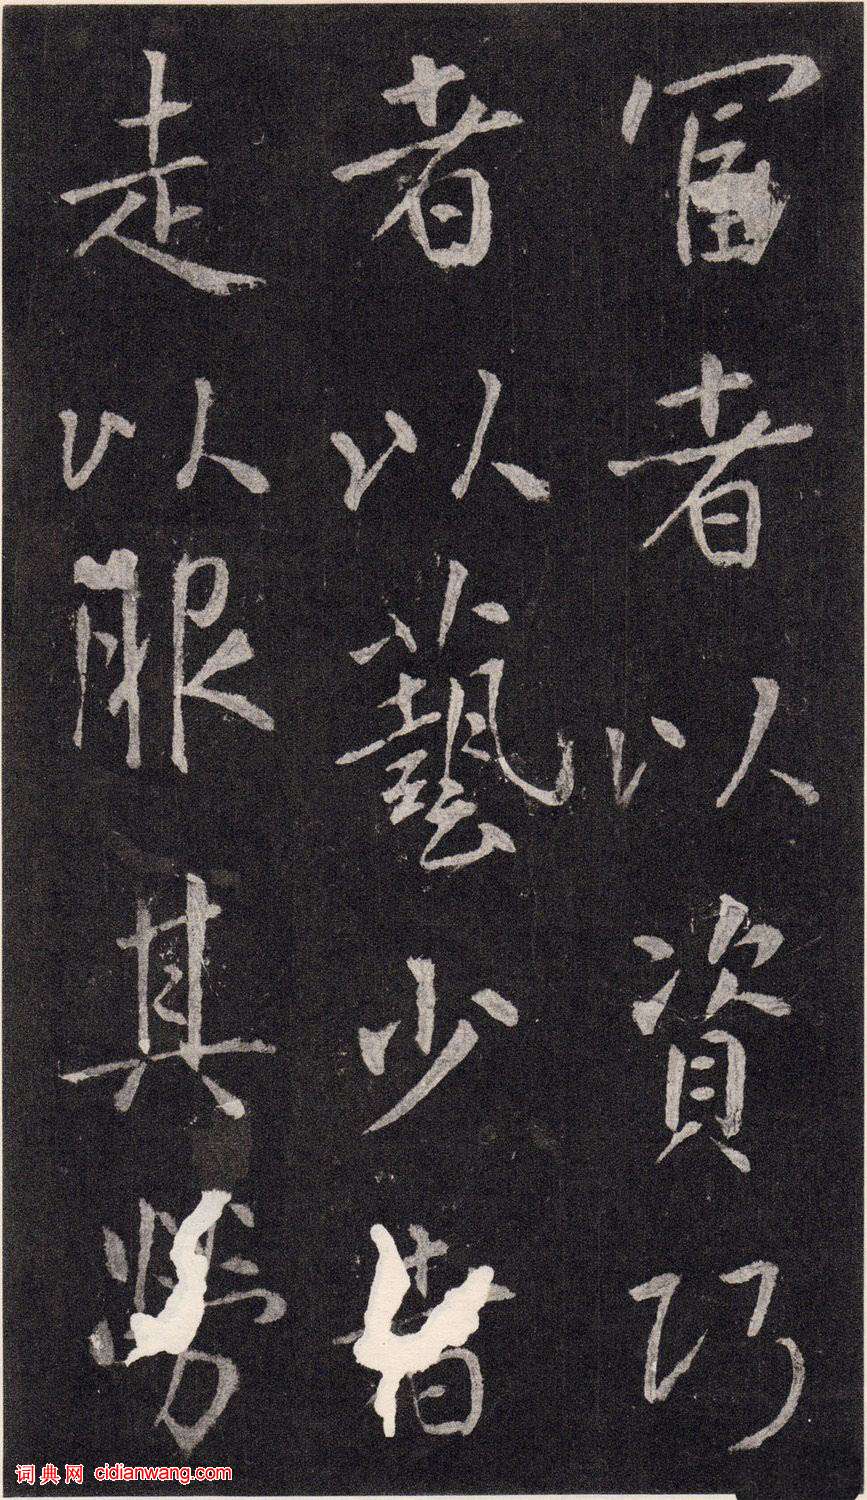 富者以資巧
者以藝少者
走以服其勞
词典网 cidianwang.com